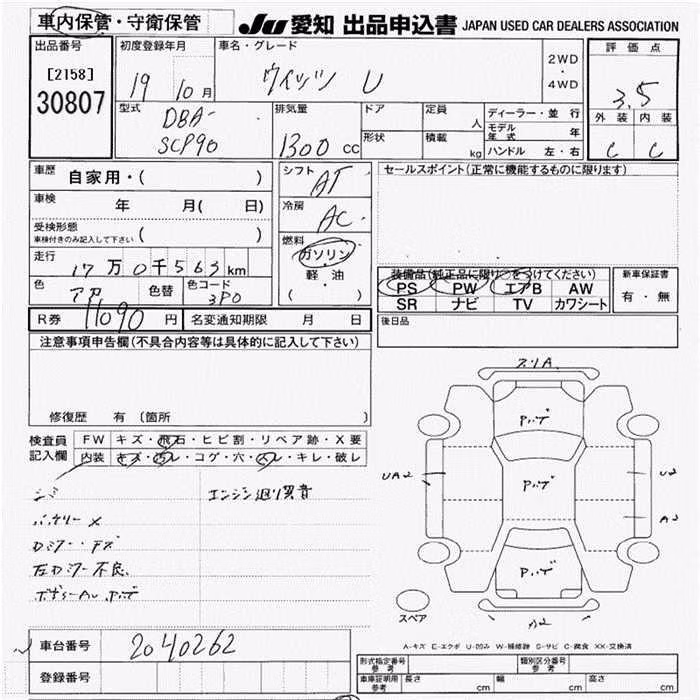 車内保管・守衛保管
JU 愛知 出品申込書 JAPAN USED CAR DEALERS ASSOCIATION
出品番号
[2158]
30807
初度登録年月
19 10月
車名・グレード
ヴィッツ U
2WD
・
4WD
評価点
3.5
外装 内装
C C
型式
DBA-
SCP90
排気量
1300 cc
ドア
形状
定員 人
積載 kg
ディーラー・並行
モデル年式 年
ハンドル 左・右
車歴 自家用・( )
車検 年 月( 日)
受検形態
車検付きのみ記入して下さい ( )
走行
17万0千563km
色
アカ
色替
色コード
3P0
シフト
AT
冷房
AC
燃料
ガソリン
・
軽・油
( )
セールスポイント(正常に機能するものに限ります)
装備品(純正品に限り○をつけてください)
PS PW エアB AW
SR ナビ TV カワシート
新車保証書
有・無
後日品
R券 11090 円 名変通知期限 月 日
注意事項申告欄(不具合内容等は具体的に記入して下さい)
修復歴 有(箇所 )
検査員記入欄
FW キズ・飛石・ヒビ割・リペア跡・X要
内装 キズ・汚レ・コゲ・穴・スレ・キレ・破レ
シミ
エンジン廻り異音
バッテリー X
Dミラー キズ
左Dミラー不良
スリA
UA2
U2
A2
A2
スペア
A-キズ E-エクボ U-凹み W-補修跡 S-サビ C-腐食 XX-交換済
車台番号 2040262
登録番号
形式指定番号 参考
類別区分番号 参考
車庫証明用 参考 長さ cm 幅 cm 高さ cm